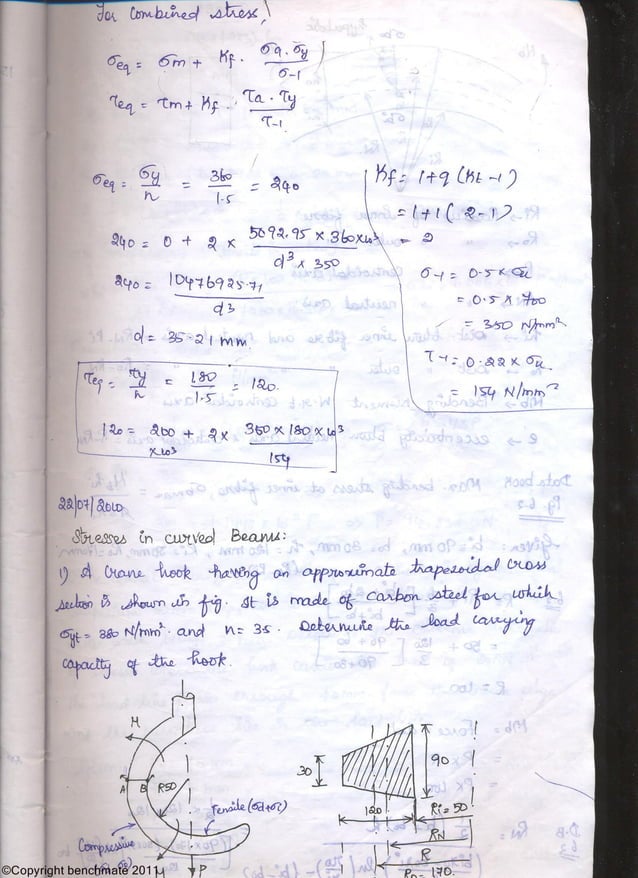 For Combined stress,
σeq = σm + Kf · σa · σy / σ-1
τeq = τm + Kf · τa · τy / τ-1
σeq = σy / n = 360 / 1.5 = 240
240 = 0 + 2 x 5092.95 x 360 x 10³ / d³ x 350
240 = 10476925.71 / d3
d = 35.21 mm.
Kf = 1 + q (Kt - 1)
= 1 + 1 ( 2 - 1 )
= 2
σ-1 = 0.5 x σu
= 0.5 x 700
= 350 N/mm²
τ-1 = 0.22 x σu
= 154 N/mm²
τeq = τy / n = 180 / 1.5 = 120.
120 = 200 x10³ + 2 x 350 x 180 x 10³ / 154
22/07/2010
Stresses in curved Beams:
1) A Crane hook having an approximate trapezoidal cross
section is shown in fig. It is made of carbon steel for which
σyt = 380 N/mm² and n = 35. Determine the load carrying
capacity of the hook.
M
A B R50
Tensile (σd+σc)
Compressive
P
30
90
120
Ri = 50
RN
R
Ro = 170.
©Copyright benchmate 2011